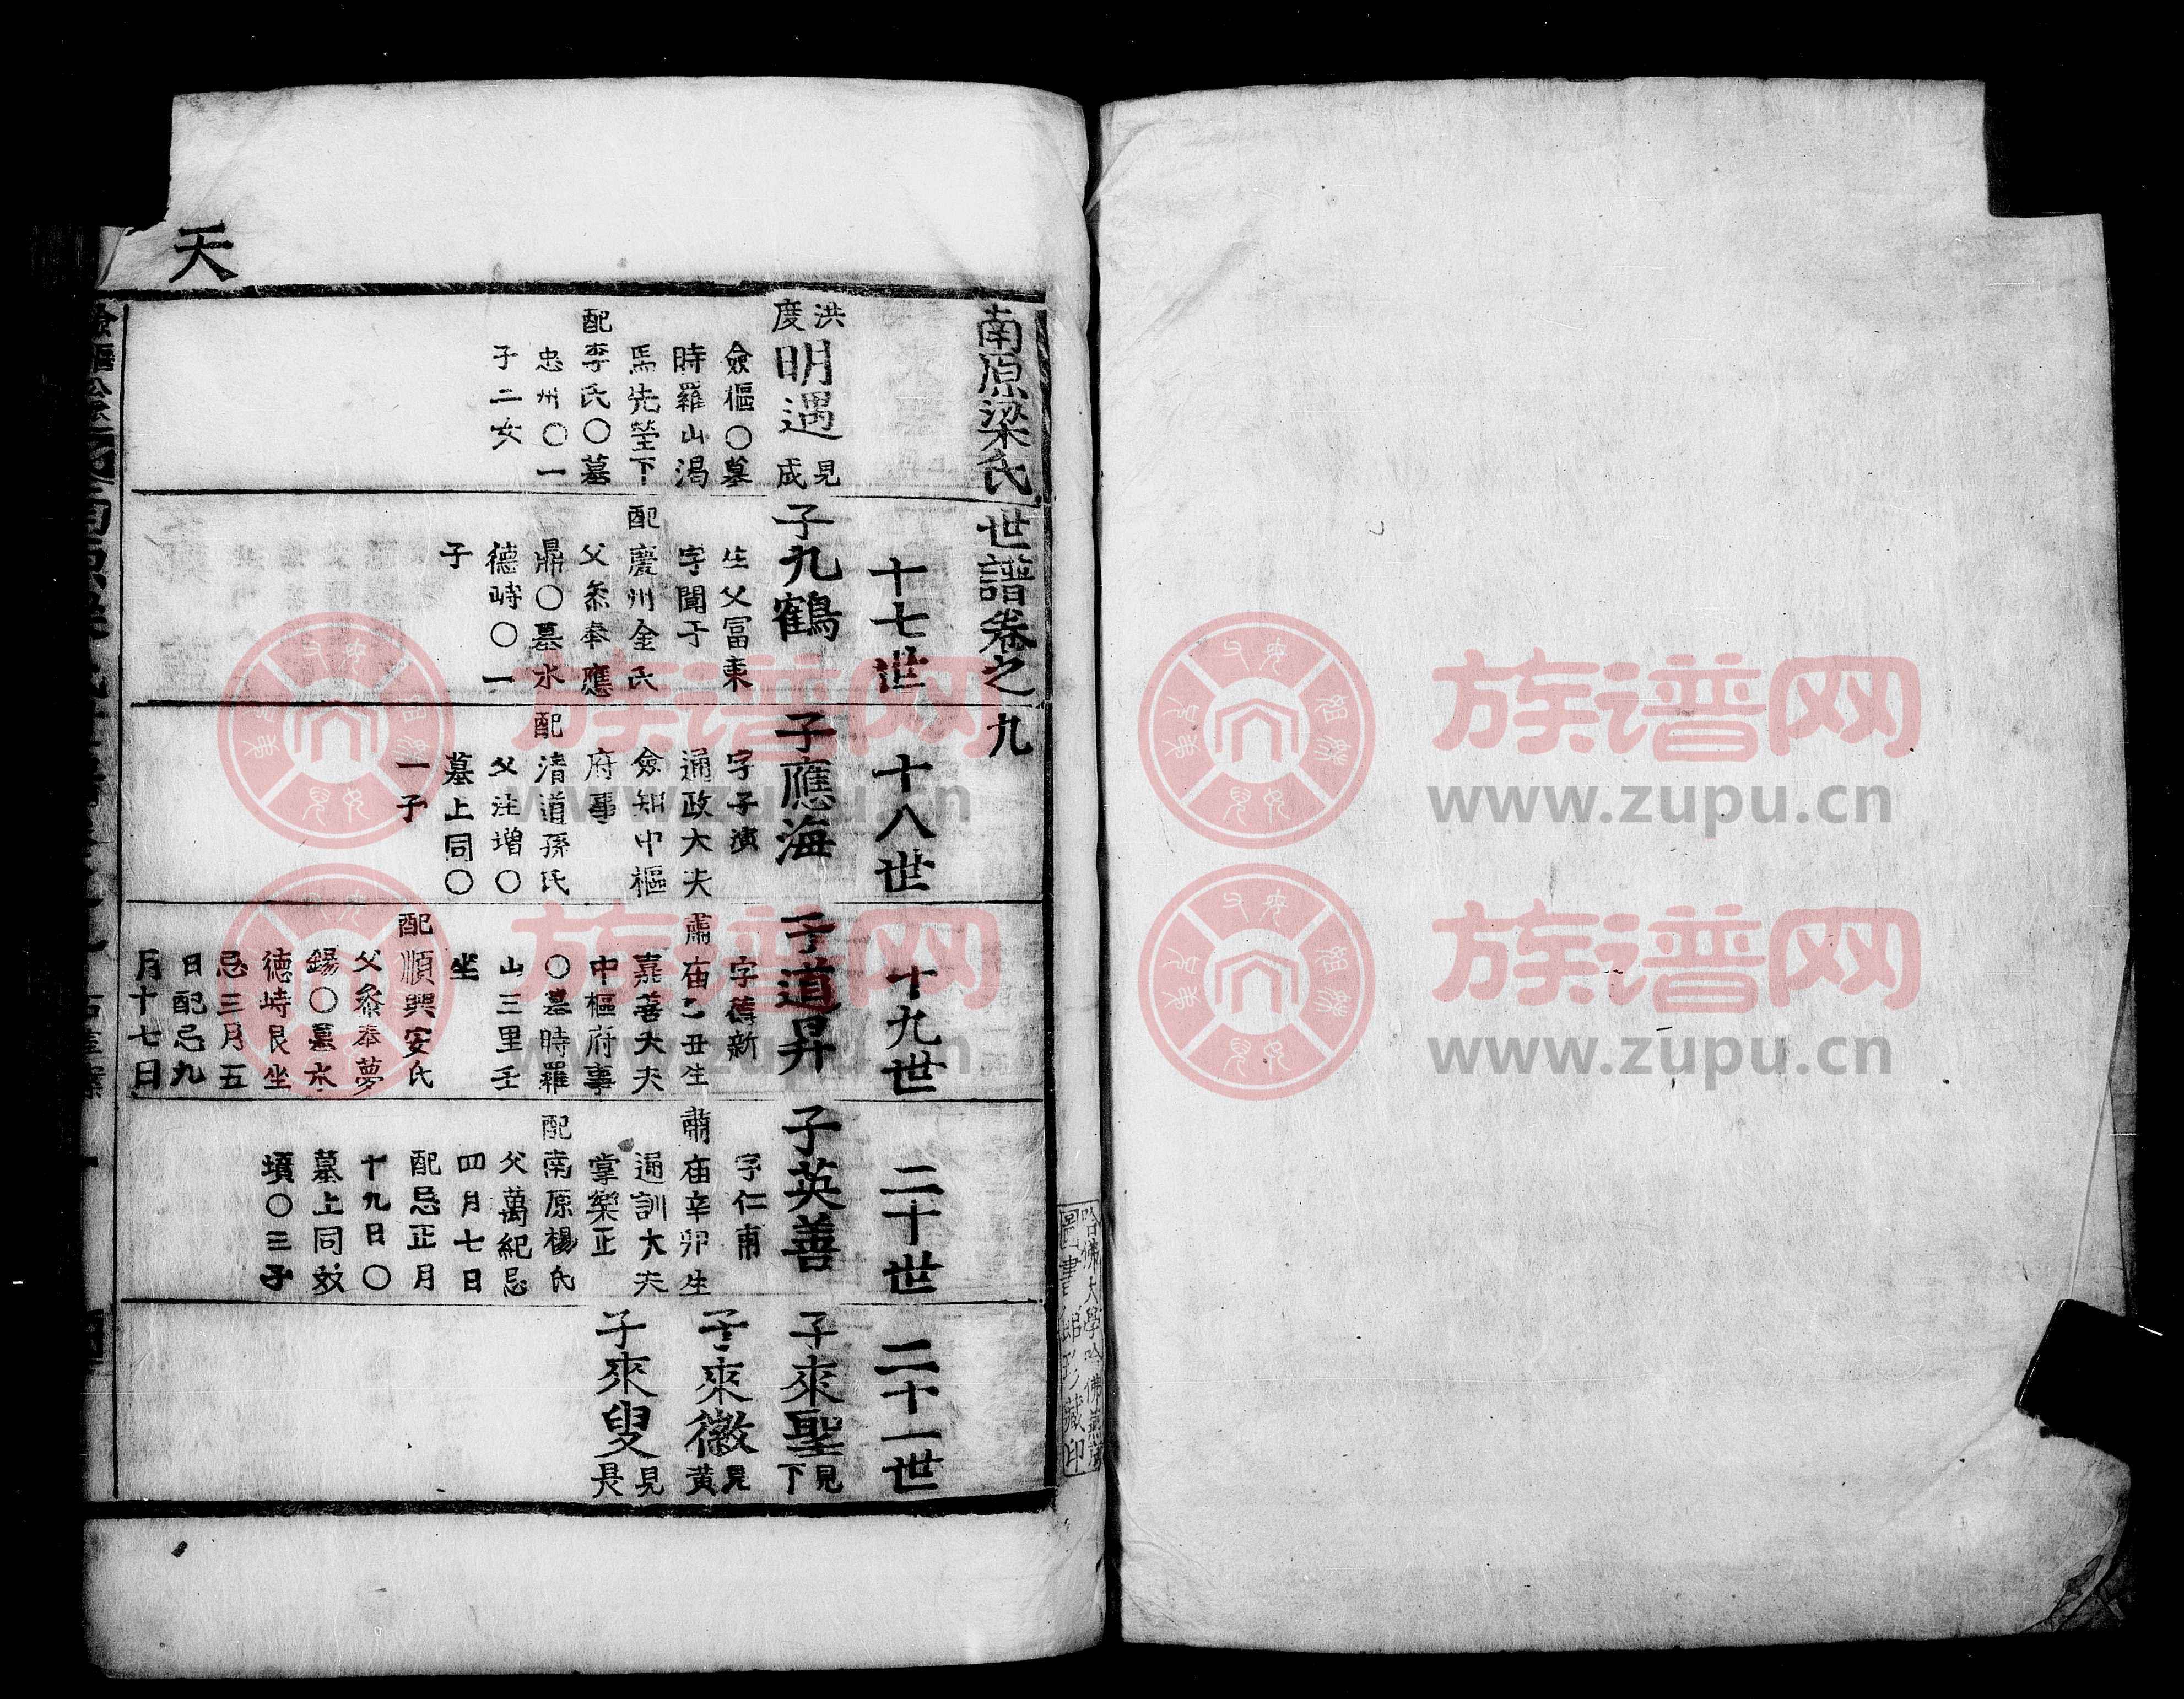 天
南原梁氏世譜卷之九
十七世
十八世
十九世
二十世
二十一世
洪
度
明遇
見
成
僉樞〇墓
時羅山渴
馬先塋下
配李氏〇墓
忠州〇一
子二女
子九鶴
生父冨東
字聞于
配慶州金氏
父叅奉應
鼎〇墓水
德峙〇一
子
子應海
字子濱
通政大夫
僉知中樞
府事
配清道孫氏
父注增〇
墓上同〇
一子
子道昇
字德新
肅庙乙丑生
嘉善大夫
中樞府事
〇墓時羅
山三里壬
坐
配順興安氏
父叅奉夢
錫〇墓水
德峙艮坐
忌三月五
日配忌九
月十七日
子英善
字仁甫
肅庙辛卯生
通訓大夫
掌樂正
配南原楊氏
父萬紀忌
四月七日
配忌正月
十九日〇
墓上同双
墳〇三子
子來聖
見
下
子來徽
見
黃
子來叟
見
長
哈佛大學哈佛燕京
圖書館珍藏印
族谱网
www.zupu.cn
族谱网
www.zupu.cn
族谱网
www.zupu.cn
族谱网
www.zupu.cn